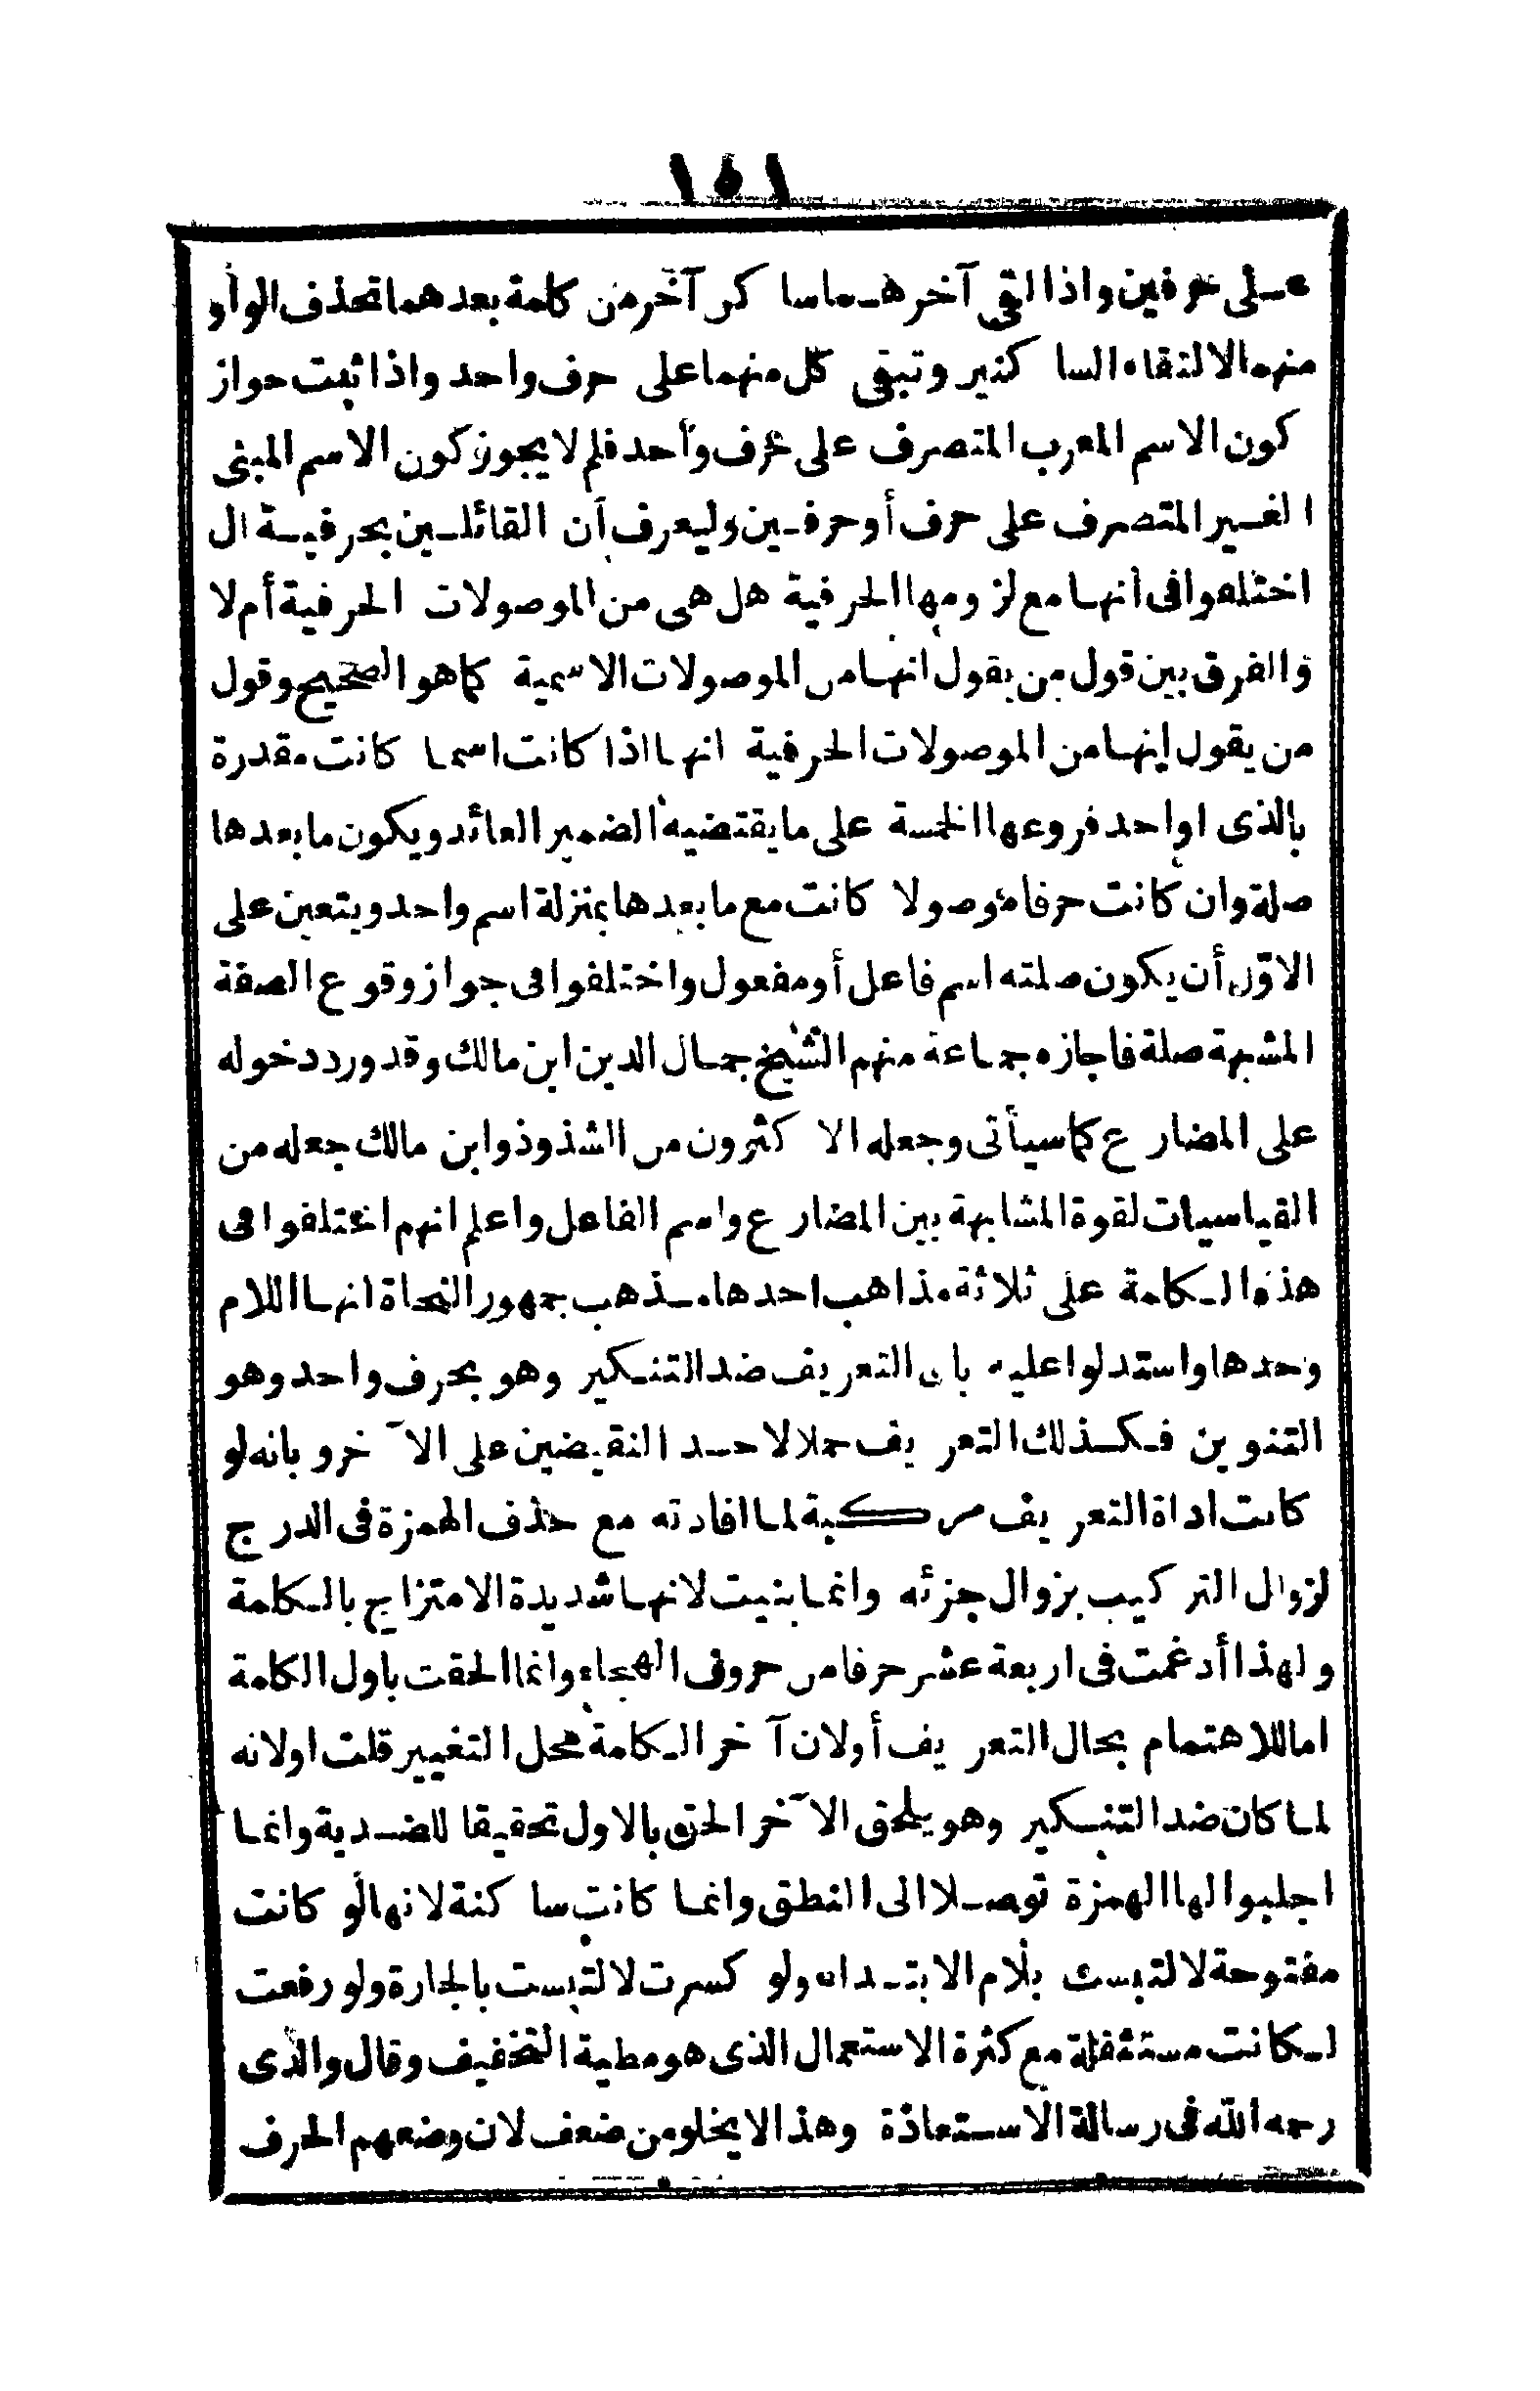 ١٥١
على حرفين واذا التقى آخرهما ساكن آخر من كلمة بعدهما تحذف الواو
منهما لالتقاء الساكنين وتبقى كل منهما على حرف واحد واذا ثبت جواز
كون الاسم المعرب المتصرف على حرف واحد فلم لا يجوز كون الاسم المبنى
الغير المتصرف على حرف أو حرفين وليعرف أن القائلين بحرفية ال
اختلفوا فى انها مع لزومها الحرفية هل هى من الموصولات الحرفية أم لا
والفرق بين قول من يقول انها من الموصولات الاسمية كما هو الصحيح وقول
من يقول انها من الموصولات الحرفية انها اذا كانت اسما كانت مقدرة
بالذى او احد فروعها الخمسة على ما يقتضيه الضمير العائد ويكون ما بعدها
صلة وان كانت حرفا موصولا كانت مع ما بعدها بمنزلة اسم واحد ويتعين على
الاوّل أن يكون صلته اسم فاعل أو مفعول واختلفوا فى جواز وقوع الصفة
المشبهة صلة فاجازه جماعة منهم الشيخ جمال الدين ابن مالك وقد ورد دخوله
على المضارع كما سيأتى وجعله الاكثرون من الشذوذ وابن مالك جعله من
القياسيات لقوة المشابهة بين المضارع واسم الفاعل واعلم انهم اختلفوا فى
هذه الكلمة على ثلاثة مذاهب احدها مذهب جمهور النحاة انها اللام
وحدها واستدلوا عليه بان التعريف ضد التنكير وهو بحرف واحد وهو
التنوين فكذلك التعريف حملا لاحد النقيضين على الآخر وبانه لو
كانت اداة التعريف مركبة لما افادته مع حذف الهمزة فى الدرج
لزوال التركيب بزوال جزئه وانما بنيت لانها شديدة الامتزاج بالكلمة
ولهذا أدغمت فى اربعة عشر حرفا من حروف الهجاء وانما الحقت باول الكلمة
اما للاهتمام بحال التعريف أو لان آخر الكلمة محل التغيير قلت او لانه
لما كان ضد التنكير وهو يلحق الآخر الحق بالاول تحقيقا للضدية وانما
اجلبوا لها الهمزة توصلا الى النطق وانما كانت ساكنة لانها لو كانت
مفتوحة لالتبست بلام الابتداء ولو كسرت لالتبست بالجارة ولو رفعت
لكانت مستثقلة مع كثرة الاستعمال الذى هو مطية التخفيف وقال والدى
رحمه الله فى رسالة الاستعاذة وهذا لا يخلو من ضعف لان وضعهم الحرف